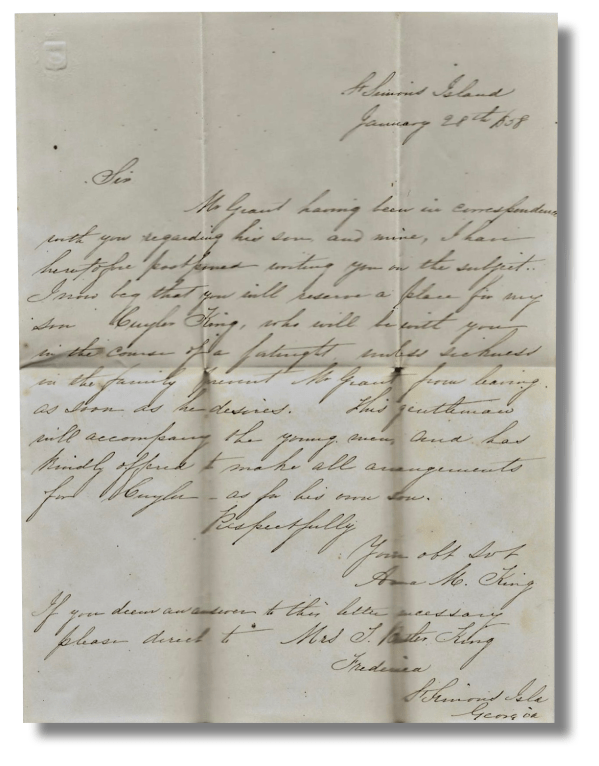 St Simons Island
January 28th /58
Sir
Mr Grant having been in correspondence
with you regarding his son, and mine, I have
heretofore postponed writing you on the subject..
I now beg that you will reserve a place for my
son Cuyler King, who will be with you
in the course of a fortnight unless sickness
in the family prevent Mr Grant from leaving
as soon as he desires. This gentleman
will accompany the young men, and has
kindly offered to make all arangements
for Cuyler - as for his own son.
Respectfully
Your obt Svt
Anna M. King
If you deem an answer to this letter necessary
please direct to Mrs T. Butler King
Frederica
St Simons Isld
Georgia